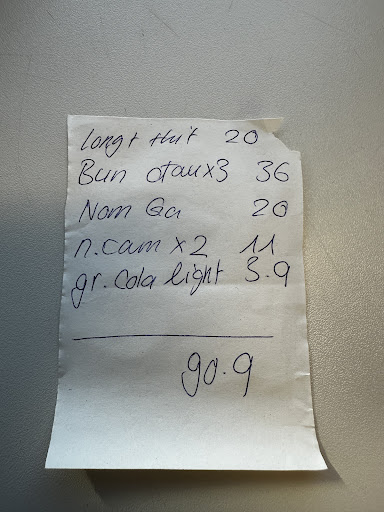 longt thit 20
Bun otau x3 36
Nom Ga 20
n.cam x 2 11
gr. Cola light 3.9
90.9